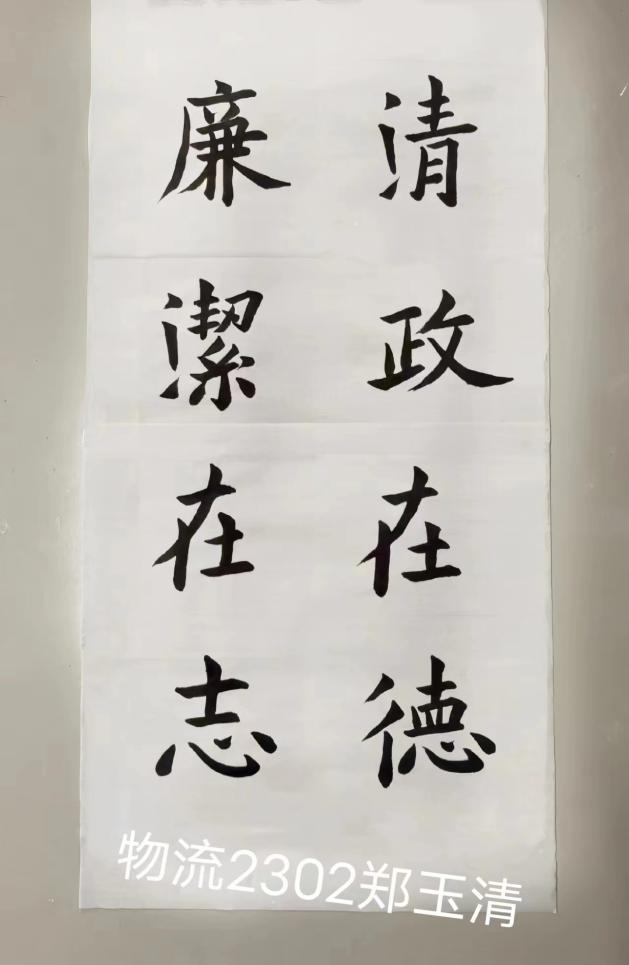 清政在德
廉潔在志
物流2302郑玉清